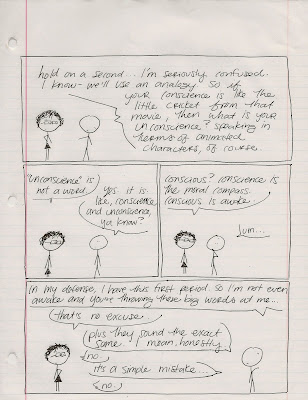 hold on a second... I'm seriously confused.
I know - we'll use an analogy. So if
your conscience is like the
little cricket from that
movie, then what is your
unconscience? speaking in
terms of animated
characters, of course.
"unconscience" is
not a word.
yes it is.
like, conscience
and unconscience,
ya know?
conscious? conscience is
the moral compass.
conscious is awake.
um...
in my defense, I have this first period so I'm not even
awake and you're throwing these big words at me...
that's no excuse.
plus they sound the exact
same. I mean, honestly...
no.
it's a simple mistake...
no.